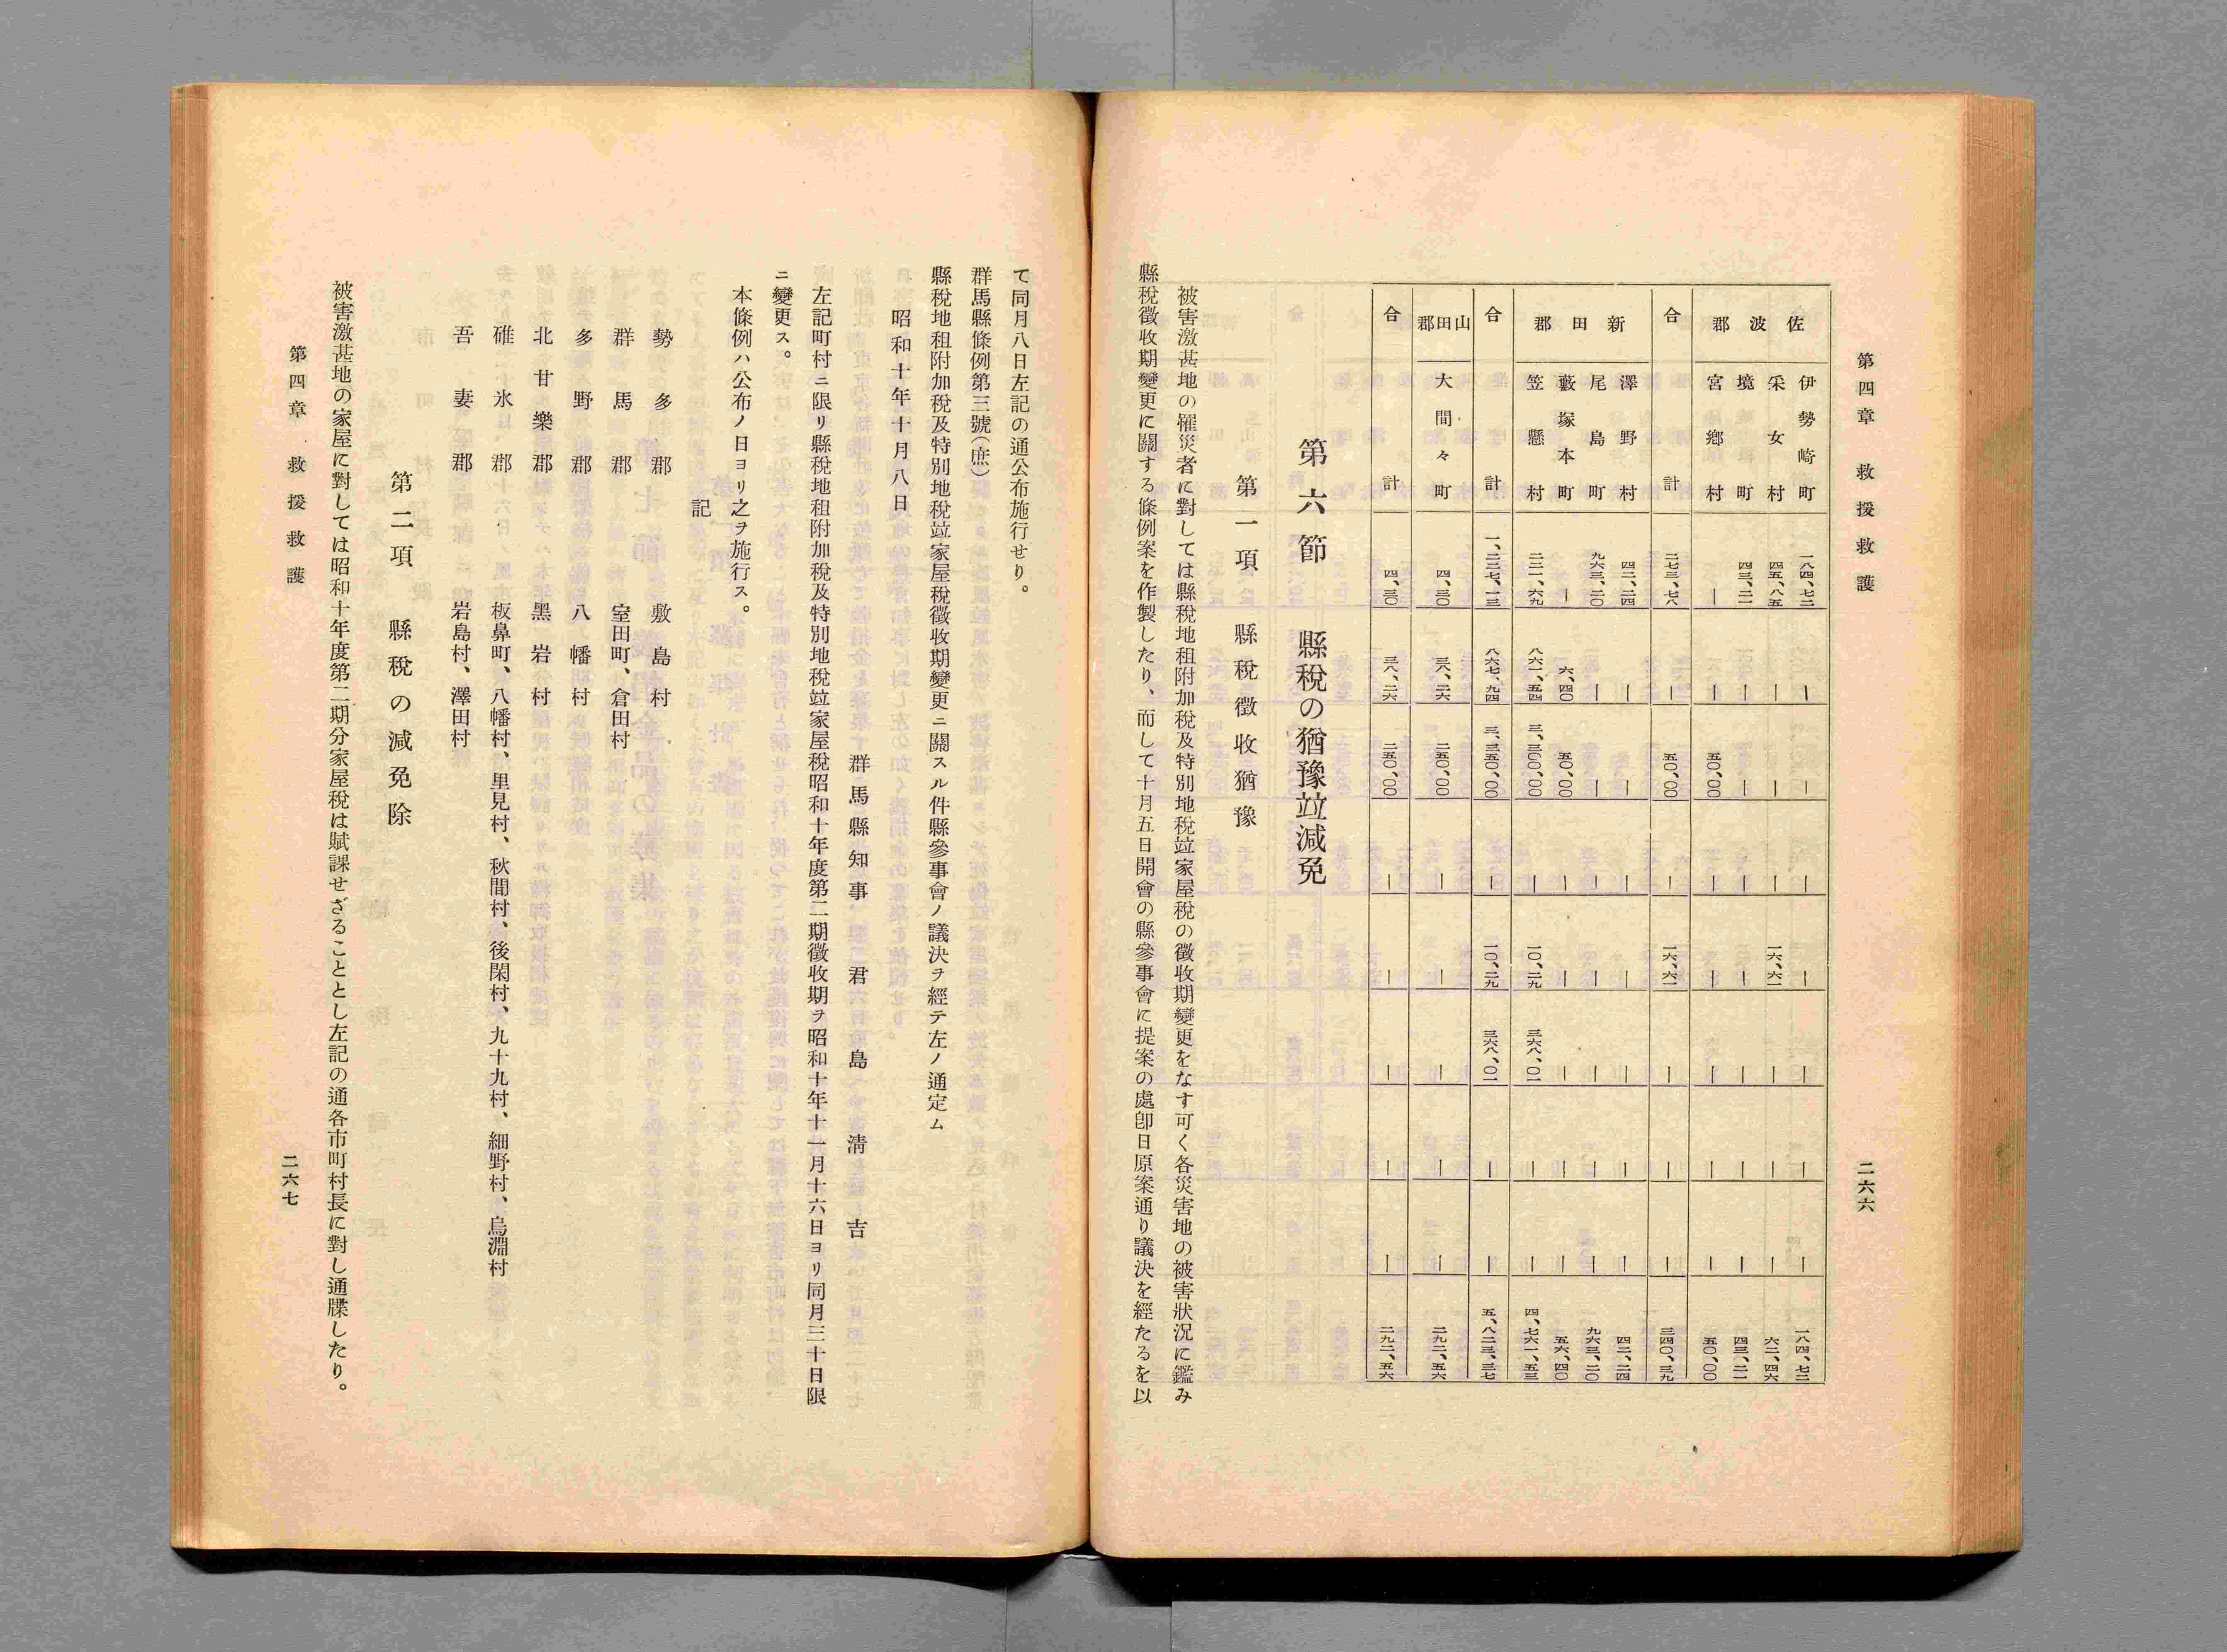 第四章　救援救護
二六六
佐波郡　伊勢崎町　一八四、七二　｜　｜　｜　｜　｜　｜　｜　一八四、七二
采女村　四五、八五　｜　｜　｜　一六、六一　｜　｜　｜　六二、四六
境町　四三、二一　｜　｜　｜　｜　｜　｜　｜　四三、二一
宮郷村　｜　｜　五〇、〇〇　｜　｜　｜　｜　｜　五〇、〇〇
合計　二七三、七八　｜　五〇、〇〇　｜　一六、六一　｜　｜　｜　三四〇、三九
新田郡　澤野村　四二、二四　｜　｜　｜　｜　｜　｜　｜　四二、二四
尾島町　九六三、二〇　｜　｜　｜　｜　｜　｜　｜　九六三、二〇
藪塚本町　｜　六、四〇　五〇、〇〇　｜　｜　｜　｜　｜　五六、四〇
笠懸村　二二一、六九　八六一、五四　三、三〇〇、〇〇　｜　一〇、二九　三六八、〇一　｜　｜　四、七六一、五三
合計　一、二二七、一三　八六七、九四　三、三五〇、〇〇　｜　一〇、二九　三六八、〇一　｜　｜　五、八二三、三七
山田郡　大間々町　四、三〇　三八、二六　二五〇、〇〇　｜　｜　｜　｜　｜　二九二、五六
合計　四、三〇　三八、二六　二五〇、〇〇　｜　｜　｜　｜　｜　二九二、五六
第六節　縣稅の猶豫竝減免
第一項　縣稅徵收猶豫
被害激甚地の罹災者に對しては縣稅地租附加稅及特別地稅竝家屋稅の徵收期變更をなす可く各災害地の被害狀況に鑑み
縣稅徵收期變更に關する條例案を作製したり、而して十月五日開會の縣參事會に提案の處卽日原案通り議決を經たるを以
て同月八日左記の通公布施行せり。
群馬縣條例第三號（庶）
縣稅地租附加稅及特別地稅竝家屋稅徵收期變更ニ關スル件縣參事會ノ議決ヲ經テ左ノ通定ム
昭和十年十月八日
群馬縣知事　君島淸吉
左記町村ニ限リ縣稅地租附加稅及特別地稅竝家屋稅昭和十年度第二期徵收期ヲ昭和十年十一月十六日ヨリ同月三十日限
ニ變更ス。
本條例ハ公布ノ日ヨリ之ヲ施行ス。
記
勢多郡　敷島村
群馬郡　室田町、倉田村
多野郡　八幡村
北甘樂郡　黑岩村
碓氷郡　板鼻町、八幡村、里見村、秋間村、後閑村、九十九村、細野村、烏淵村
吾妻郡　岩島村、澤田村
第二項　縣稅の減免除
被害激甚地の家屋に對しては昭和十年度第二期分家屋稅は賦課せざることとし左記の通各市町村長に對し通牒したり。
第四章　救援救護
二六七